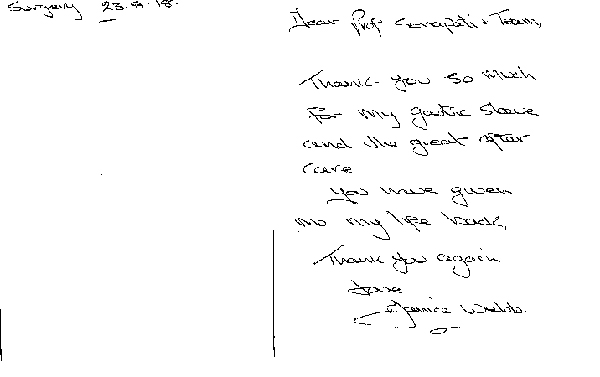 Surgery 23.9.18.
Dear Prof & Team,
Thank you so much
for my gastric sleeve
and the great after
care
You have given
me my life back,
Thank you again
Love
Janice Webb